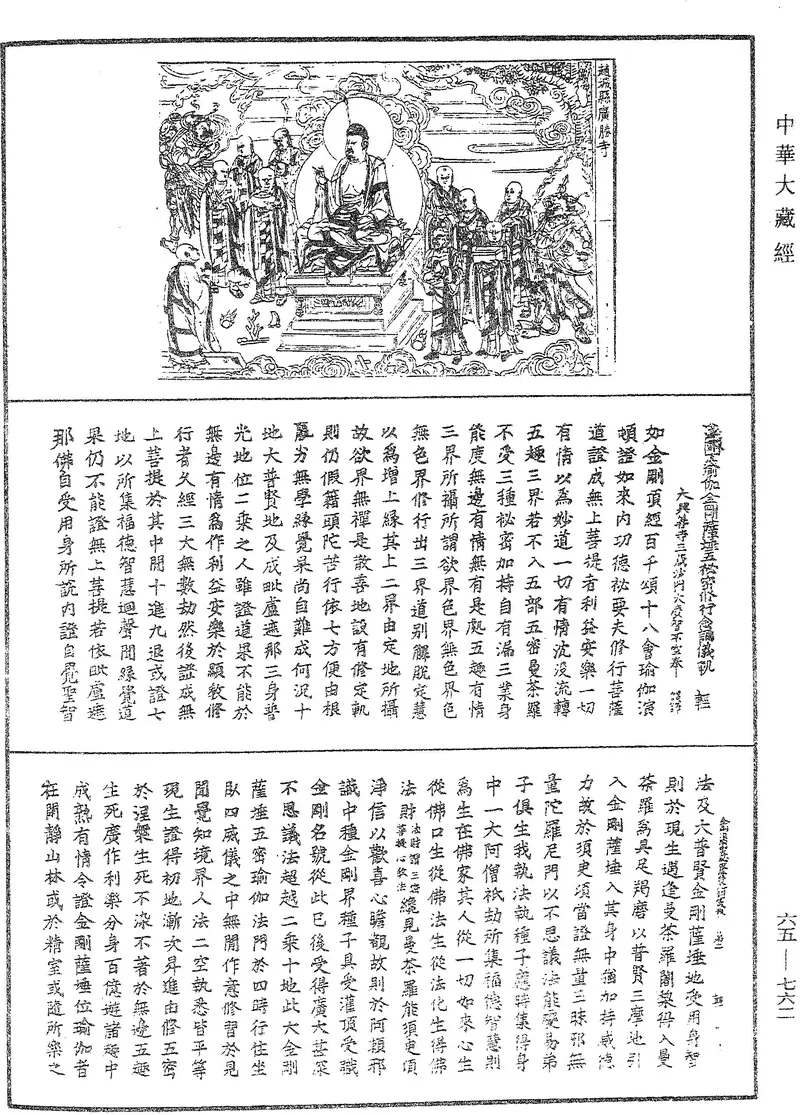 中華大藏經
趙城縣廣勝寺
金剛頂瑜伽金剛薩埵五秘密修行念誦儀軌 輕
大興善寺三藏沙門大廣智不空奉 詔譯
如金剛頂經百千頌十八會瑜伽演
頓證如來內功德祕要夫修行菩薩
道證成無上菩提者利益安樂一切
有情以為妙道一切有情沈沒流轉
五趣三界若不入五部五密曼荼羅
不受三種祕密加持自有漏三業身
能度無邊有情無有是處五趣有情
三界所攝所謂欲界色界無色界色
無色界修行出三界道別解脫定慧
以為增上緣其上二界由定地所攝
故欲界無禪是散善地設有修定軌
則仍假籍頭陀苦行依七方便由根
羸劣無學緣覺果尚自難成何況十
地大普賢地及成毗盧遮那三身普
光地位二乘之人雖證道果不能於
無邊有情為作利益安樂於顯教修
行者久經三大無數劫然後證成無
上菩提於其中間十進九退或證七
地以所集福德智慧迴聲聞緣覺道
果仍不能證無上菩提若依毗盧遮
那佛自受用身所說內證自覺聖智
法及大普賢金剛薩埵地受用身智
則於現生遇逢曼荼羅闍梨得入曼
荼羅為具足羯磨以普賢三摩地引
入金剛薩埵入其身中猶加持威德
力故於須臾頃當證無量三昧耶無
量陀羅尼門以不思議法能變易弟
子俱生我執法執種子應時集得身
中一大阿僧祇劫所集福德智慧則
為生在佛家其人從一切如來心生
從佛口生從佛法生從法化生得佛
法財法財謂三密菩提心教法纔見曼荼羅能須臾頃
淨信以歡喜心瞻覩故則於阿頼耶
識中種金剛界種子具受灌頂受職
金剛名號從此已後受得廣大甚深
不思議法超越二乘十地此大金剛
薩埵五密瑜伽法門於四時行住坐
臥四威儀之中無間作意修習於見
聞覺知境界人法二空執悉皆平等
現生證得初地漸次昇進由修五密
於涅槃生死不染不著於無邊五趣
生死廣作利樂分身百億遊諸趣中
成熟有情令證金剛薩埵位瑜伽者
在閑靜山林或於精室或隨所樂之
六五—七六二